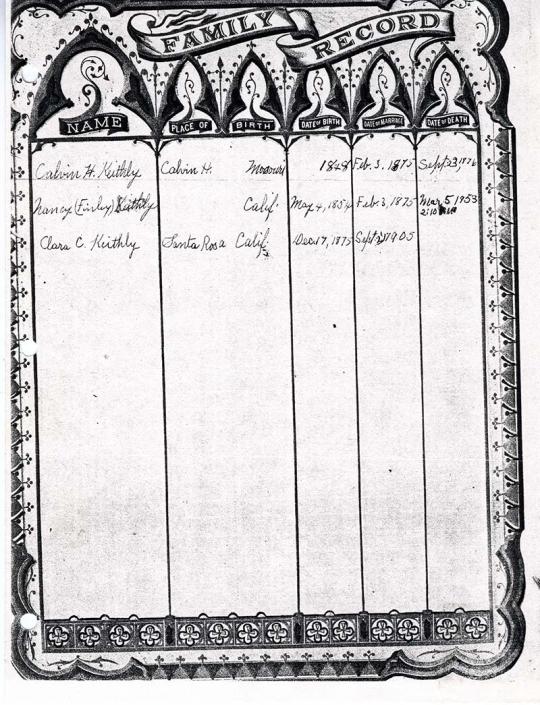 FAMILY RECORD
NAME PLACE OF BIRTH DATE OF BIRTH DATE OF MARRIAGE DATE OF DEATH
Calvin H. Keithly Calvin H. Missouri 1848 Feb. 3, 1875 Sept 23, 1876
Nancy (Finley) Keithly Calif. May 4, 1854 Feb. 3, 1875 Mar. 5 1953
2:10
Clara C. Keithly Santa Rosa Calif. Dec 17, 1875 Sept 1905